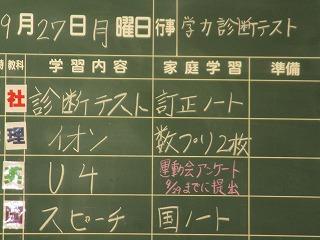 9月27日月曜日 行事 学力診断テスト
教科 学習内容 家庭学習 準備
社 診断テスト 訂正ノート
理 イオン 数プリ2枚
U4 運動会アンケート
までに提出
スピーチ 国ノート